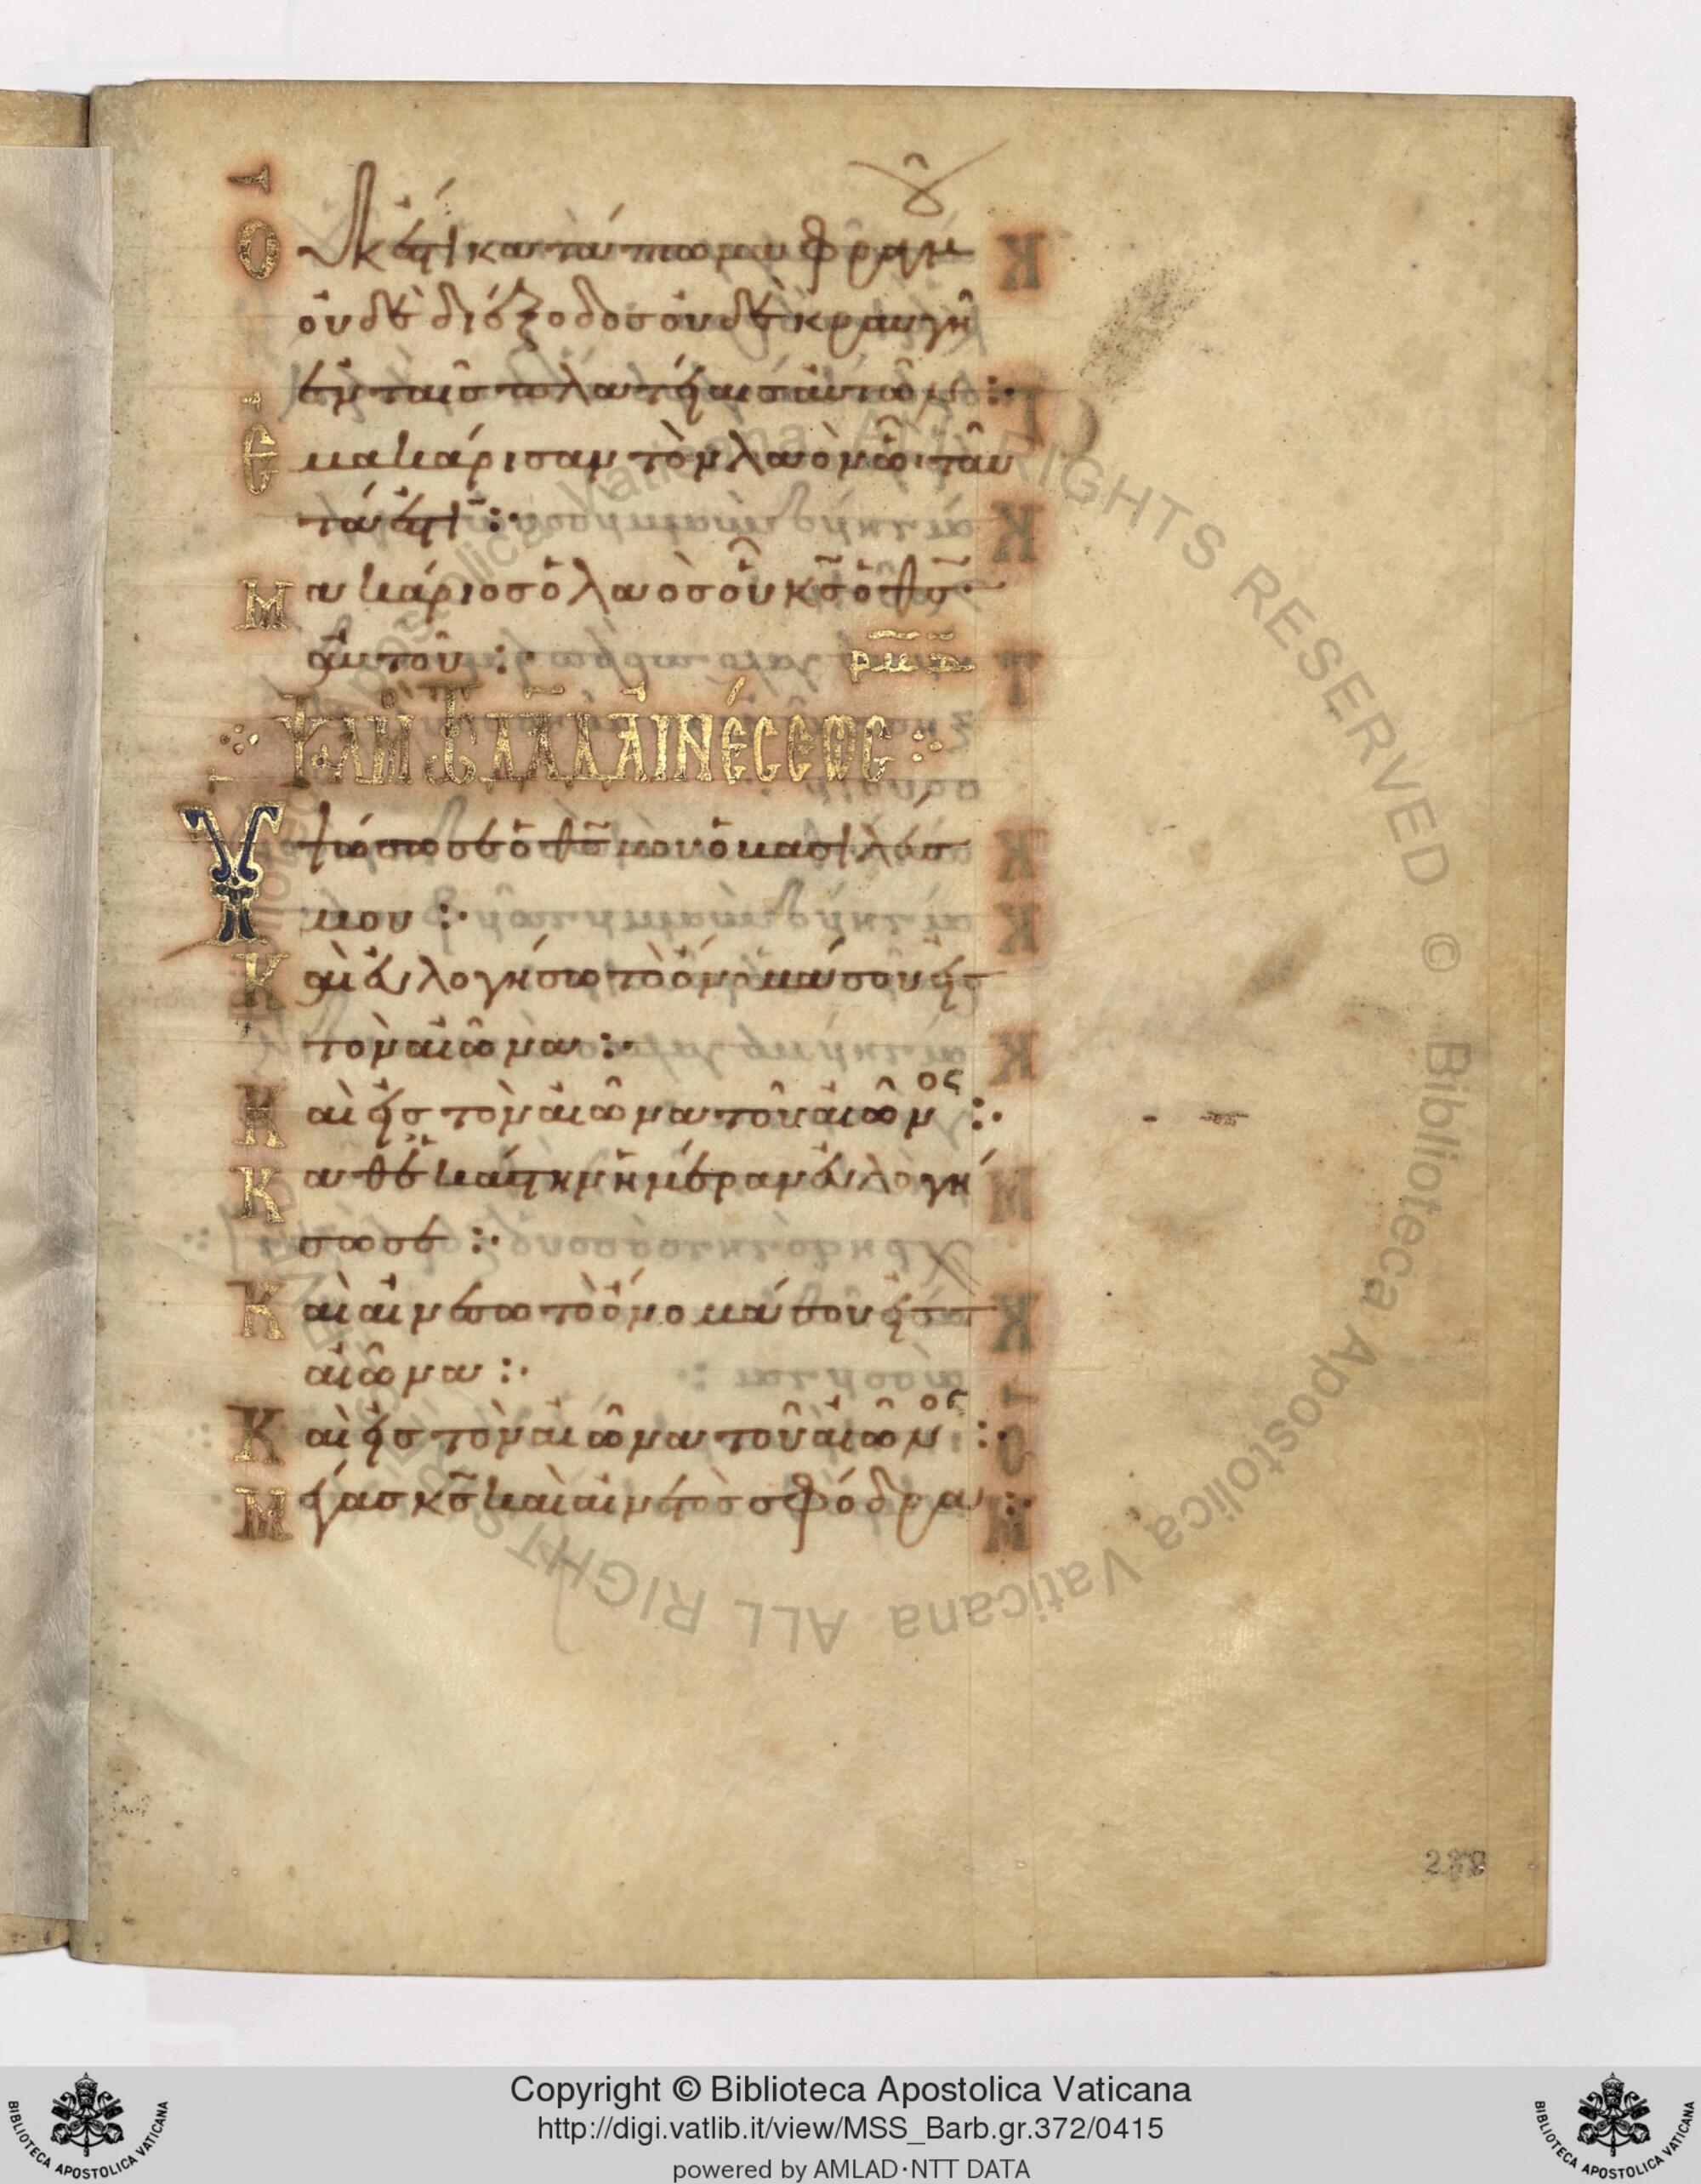 Οὐκ ἔστι κατάπτωμα φραγμοῦ
οὐδὲ διέξοδος οὐδὲ κραυγὴ
ἐν ταῖς πλατείαις αὐτῶν :·
Ἐμακάρισαν τὸν λαὸν ᾧ ταῦ
τά ἐστι :·
Μακάριος ὁ λαὸς οὗ κ̅ς̅ ὁ θ̅ς̅
αὐτοῦ :· ρμδ
αἰνέσεως
Ὑψώσω σε ὁ θ̅ς̅ μου ὁ βασιλεύς
μου :·
Καὶ εὐλογήσω τὸ ὄνομά σου εἰς
τὸν αἰῶνα :·
Καὶ εἰς τὸν αἰῶνα τοῦ αἰῶνος :·
Καθ' ἑκάστην ἡμέραν εὐλογή
σω σε :·
Καὶ αἰνέσω τὸ ὄνομά σου εἰς τὸν
αἰῶνα :·
Καὶ εἰς τὸν αἰῶνα τοῦ αἰῶνος :·
Μέγας κ̅ς̅ καὶ αἰνετὸς σφόδρα :·
238
Copyright © Biblioteca Apostolica Vaticana
http://digi.vatlib.it/view/MSS_Barb.gr.372/0415
powered by AMLAD·NTT DATA
BIBLIOTECA APOSTOLICA VATICANA
BIBLIOTECA APOSTOLICA VATICANA
© Biblioteca Apostolica Vaticana ALL RIGHTS RESERVED